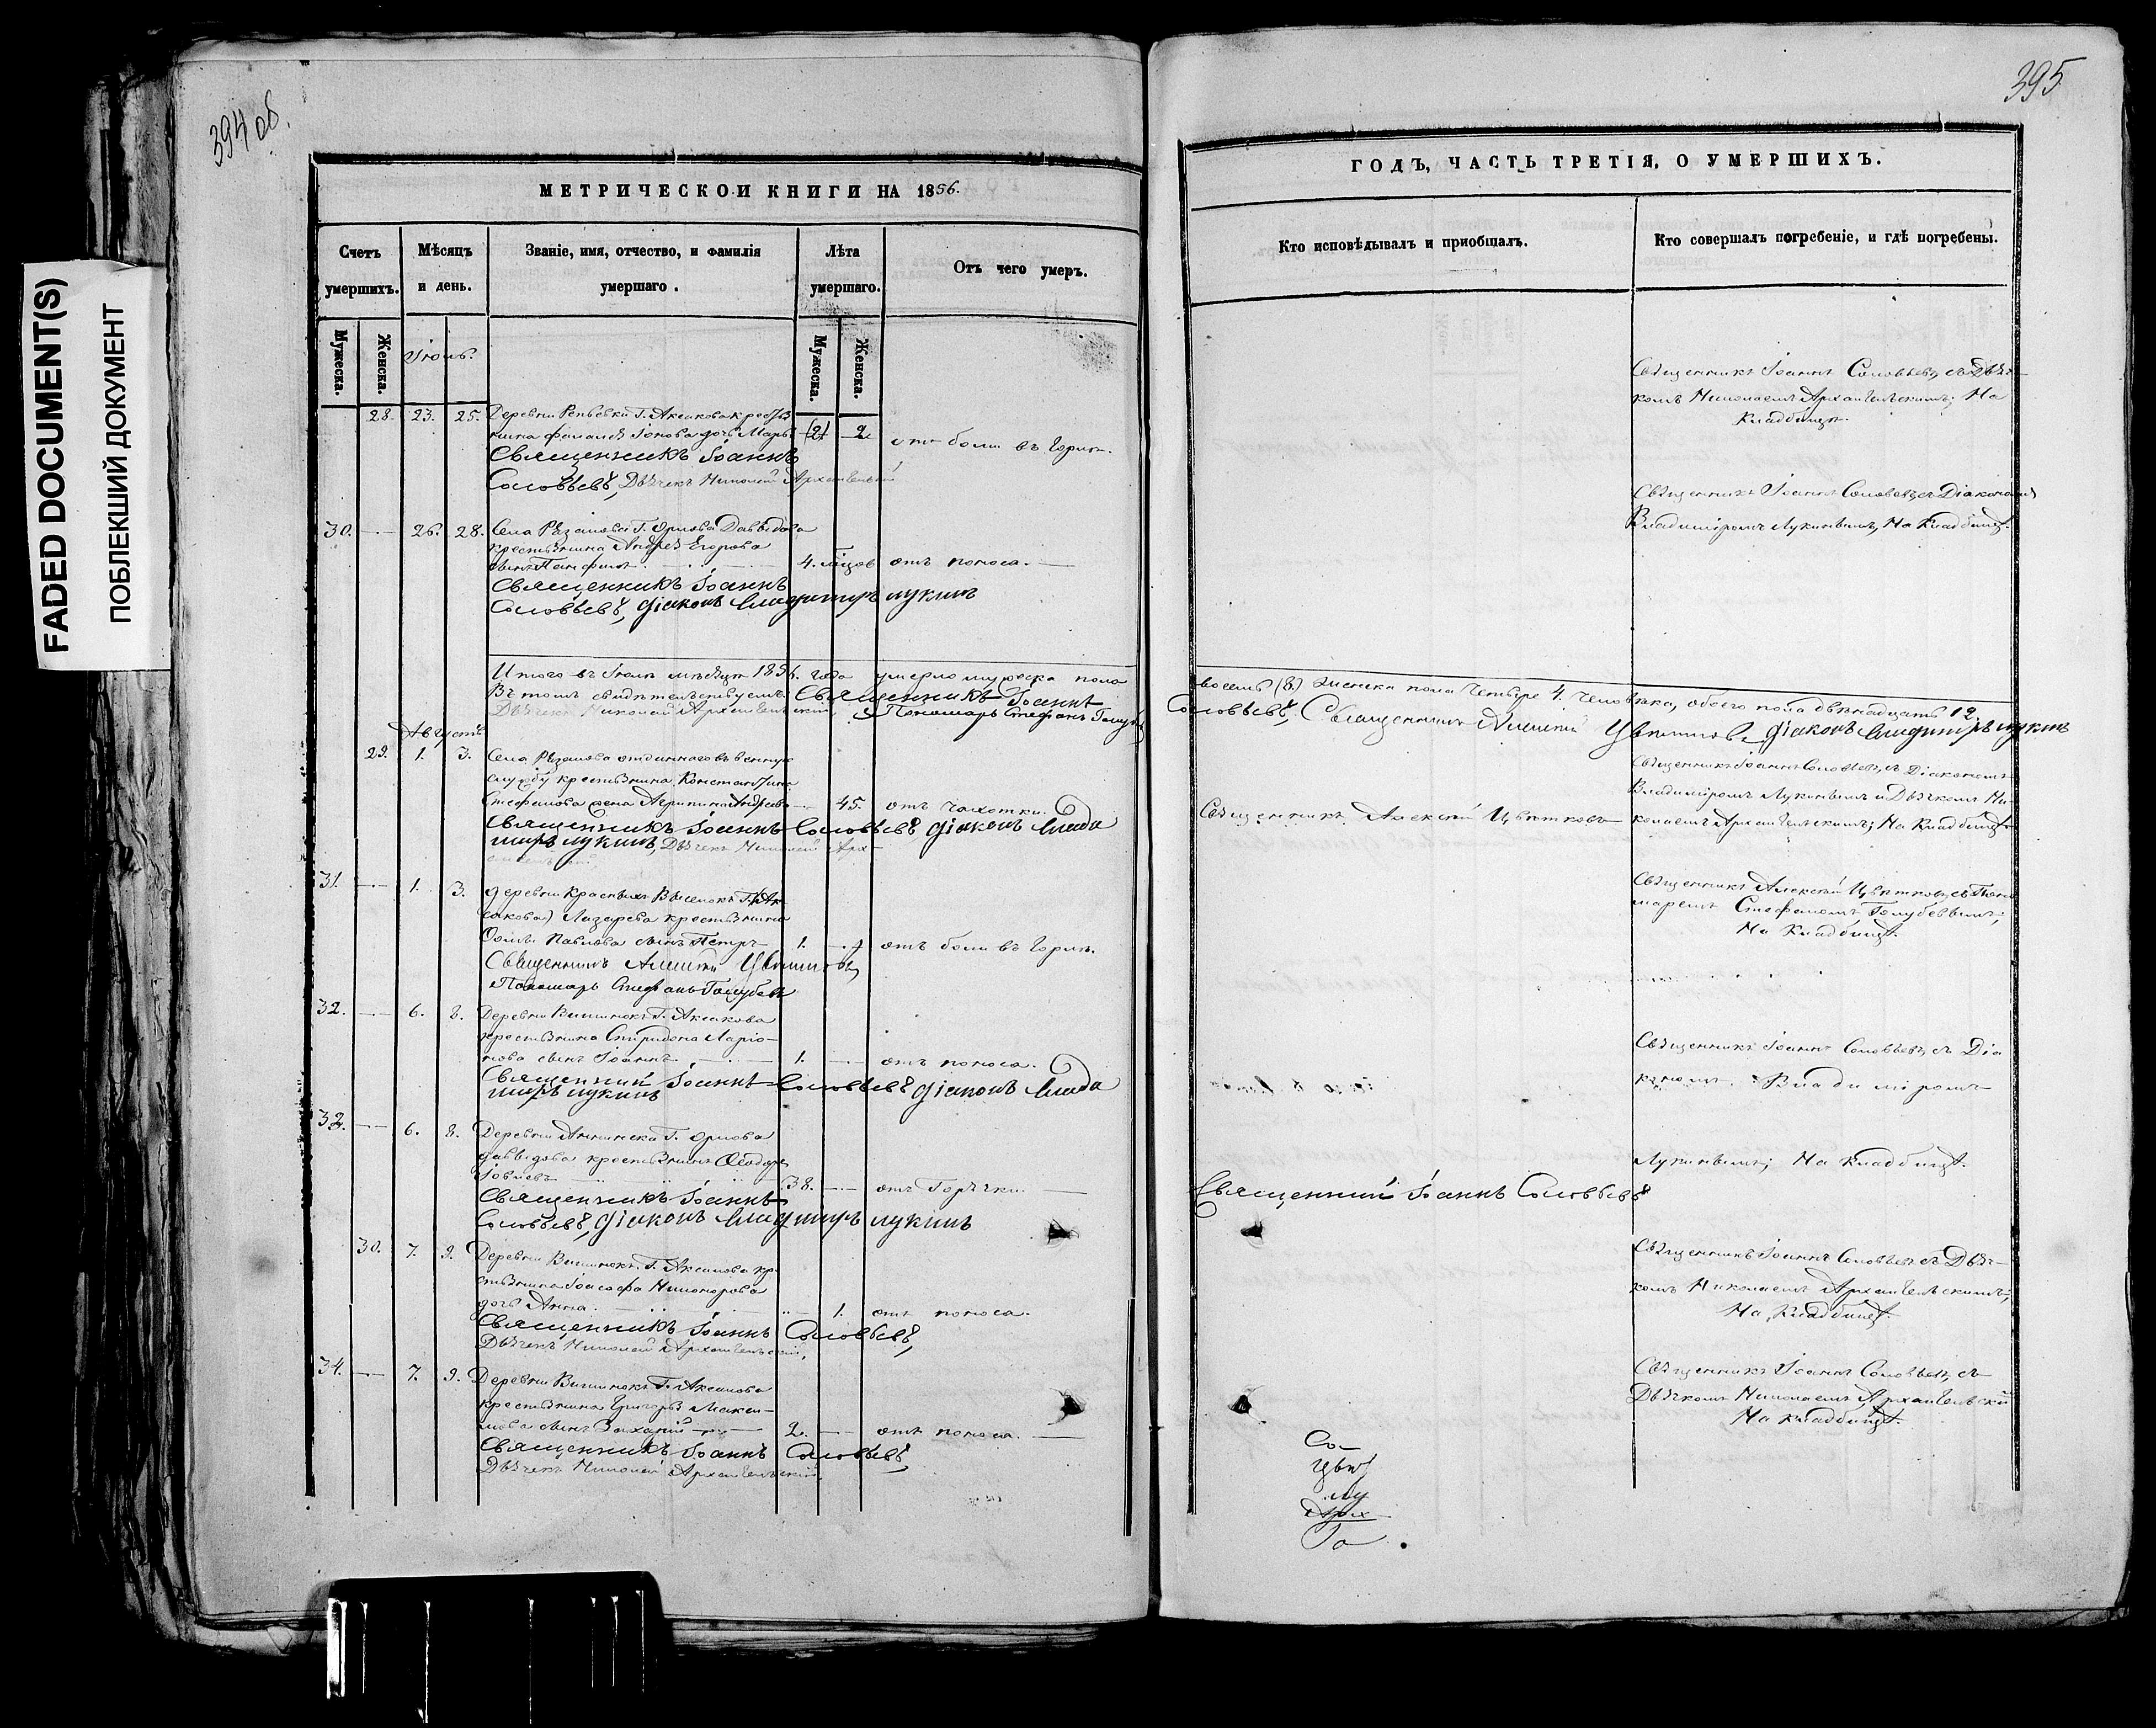 FADED DOCUMENT(S)
ПОБЛЕКШИЙ ДОКУМЕНТ
394 об.
МЕТРИЧЕСКОИ КНИГИ НА 1856.
Счетъ умершихъ.
Мѣсяцъ и день.
Званіе, имя, отчество, и фамилія умершаго.
Лѣта умершаго.
Отъ чего умеръ.
Мужеска.
Женска.
Мужеска.
Женска.
28. 23. 25. Деревни Репьевки Г. Аксакова крестья
нина Іонова дочь Марья 2 отъ боли въ горлѣ.
Священникъ Іоаннъ
Соловьевъ, Дьячекъ Николай Архангельскій
30. 26. 28. Села Рѣзанова Г. Орлова Давыдова
крестьянина Андрея Егорова
сынъ 4. отъ поноса.
Священникъ Іоаннъ
Соловьевъ, діаконъ Владимиръ Лукинъ
Итого въ Іюлѣ мѣсяцѣ 1856. года умерло мужеска пола
Въ томъ свидѣтельствуемъ Священникъ Іоаннъ
Дьячекъ Николай Архангельскій, Пономарь Стефанъ Голубевъ
Августъ
29. 1. 3. Села Рѣзанова отданнаго въ военную
службу крестьянина Константина
Стефанова жена Агрипина Андреева 45. отъ чахотки.
Священникъ Іоаннъ Соловьевъ діаконъ Влади
миръ Лукинъ, Дьячекъ Николай Арх
31. 1. 3. деревни Красныхъ Г. Ак
сакова) Лазарева крестьянина
Ѳомы Павлова сынъ Петръ 1. отъ боли въ горлѣ.
Священникъ Алексій Цвѣтковъ,
Пономарь Стефанъ Голубевъ
32. 6. 8. Деревни Вишенокъ Г. Аксакова
крестьянина Спиридона Ларіо-
нова сынъ Іоаннъ 1. отъ поноса.
Священникъ Іоаннъ Соловьевъ діаконъ Влади
миръ Лукинъ
6. 8. Деревни Аннинска Г. Орлова
давыдова крестьянинъ Ѳеодоръ
Іовлевъ 38. отъ горячки.
Священникъ Іоаннъ
Соловьевъ, діаконъ Владимиръ Лукинъ
30. 7. 9. Деревни Вишенокъ Г. Аксакова кре
стьянина Іоасафа Никонорова
дочь Анна 1. отъ поноса.
Священникъ Іоаннъ Соловьевъ,
Дьячекъ Николай Архангельскій,
34. 7. 9. Деревни Вишенокъ Г. Аксакова
крестьянина Григорья Макси-
мова сынъ Захарій 2. отъ поноса.
Священникъ Іоаннъ Соловьевъ,
Дьячекъ Николай Архангельскій,
395
ГОДЪ, ЧАСТЬ ТРЕТІЯ, О УМЕРШИХЪ.
Кто исповѣдывалъ и пріобщалъ.
Кто совершалъ погребеніе, и гдѣ погребены.
Священникъ Іоаннъ Соловьевъ, съ Дьяч-
комъ Николаемъ Архангельскимъ; На
Кладбищѣ.
Священникъ Іоаннъ Соловьевъ съ Діакономъ
Владиміромъ Лукинымъ, На Кладбищѣ.
восемь (8.) женска пола четыре 4. человѣка, обоего пола двѣнадцать 12.
Соловьевъ, Священникъ Алексій Цвѣтковъ діаконъ Владимиръ Лукинъ
Священникъ Іоаннъ Соловьевъ, съ Діакономъ
Владиміромъ Лукинымъ и Дьячкомъ Ни-
Священникъ Алексій Цвѣтковъ
колаемъ Архангельскимъ; На Кладбищѣ
Священникъ Алексій Цвѣтковъ, съ Поно
маремъ Стефаномъ Голубевымъ;
На Кладбищѣ.
Священникъ Іоаннъ Соловьевъ, съ Діа
кономъ Владиміромъ
Лукинымъ; На Кладбищѣ.
Священникъ Іоаннъ Соловьевъ
Священникъ Іоаннъ Соловьевъ съ Дьяч-
комъ Николаемъ Архангельскимъ;
На Кладбищѣ.
Священникъ Іоаннъ Соловьевъ, съ
Дьячкомъ Николаемъ Архангельскій
На Кладбищѣ.
Со-
Цвѣт
лу
Арх
Го